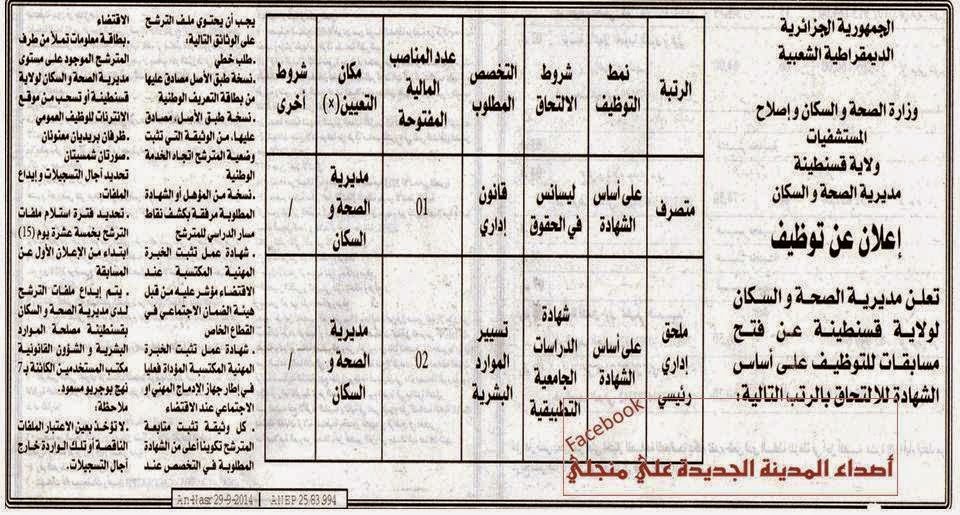 الجمهورية الجزائرية
الديمقراطية الشعبية
وزارة الصحة و السكان و إصلاح
المستشفيات
ولاية قسنطينة
مديرية الصحة و السكان
إعلان عن توظيف
تعلن مديرية الصحة و السكان
لولاية قسنطينة عن فتح
مسابقات للتوظيف على أساس
الشهادة للالتحاق بالرتب التالية:
الرتبة
نمط
التوظيف
شروط
الالتحاق
التخصص
المطلوب
عدد المناصب
المالية
المفتوحة
مكان
التعيين (×)
شروط
أخرى
متصرف
على أساس
الشهادة
ليسانس
في الحقوق
قانون
إداري
01
مديرية
الصحة و
السكان
/
ملحق
إداري
رئيسي
على أساس
الشهادة
شهادة
الدراسات
الجامعية
التطبيقية
تسيير
الموارد
البشرية
02
مديرية
الصحة و
السكان
/
يجب أن يحتوي ملف الترشح
على الوثائق التالية:
. طلب خطي
. نسخة طبق الأصل مصادق عليها
من بطاقة التعريف الوطنية
. نسخة طبق الأصل، مصادق
عليها، من الوثيقة التي تثبت
وضعية المترشح اتجاه الخدمة
الوطنية
. نسخة من المؤهل أو الشهادة
المطلوبة مرفقة بكشف نقاط
مسار الدراسي للمترشح
. شهادة عمل تثبت الخبرة
المهنية المكتسبة عند
الاقتضاء مؤشر عليه من قبل
هيئة الضمان الاجتماعي في
القطاع الخاص
. شهادة عمل تثبت الخبرة
المهنية المكتسبة المؤداة فعليا
في إطار جهاز الادماج المهني أو
الاجتماعي عند الاقتضاء
. كل وثيقة تثبت متابعة
المترشح تكوينا أعلى من الشهادة
المطلوبة في التخصص عند
الاقتضاء
. بطاقة معلومات تملأ من طرف
المترشح الموجود على مستوى
مديرية الصحة و السكان لولاية
قسنطينة أو تسحب من موقع
الانترنات للوظيف العمومي
. ظرفان بريديان معنونان
. صورتان شمسيتان
تحديد آجال التسجيلات و إيداع
الملفات:
. تحديد فترة استلام ملفات
الترشح بخمسة عشرة يوم (15)
ابتداء من الإعلان الأول عن
المسابقة
. يتم إيداع ملفات الترشح
لدى مديرية الصحة و السكان
بقسنطينة مصلحة الموارد
البشرية و الشؤون القانونية
مكتب المستخدمين الكائنة بـ 7
نهج بوجريو مسعود.
ملاحظة:
. لا تؤخذ بعين الاعتبار الملفات
الناقصة أو تلك الواردة خارج
آجال التسجيلات.
Facebook
أصداء المدينة الجديدة علي منجلي
An-Nasr 29-9-2014
ANEP 25/83 994